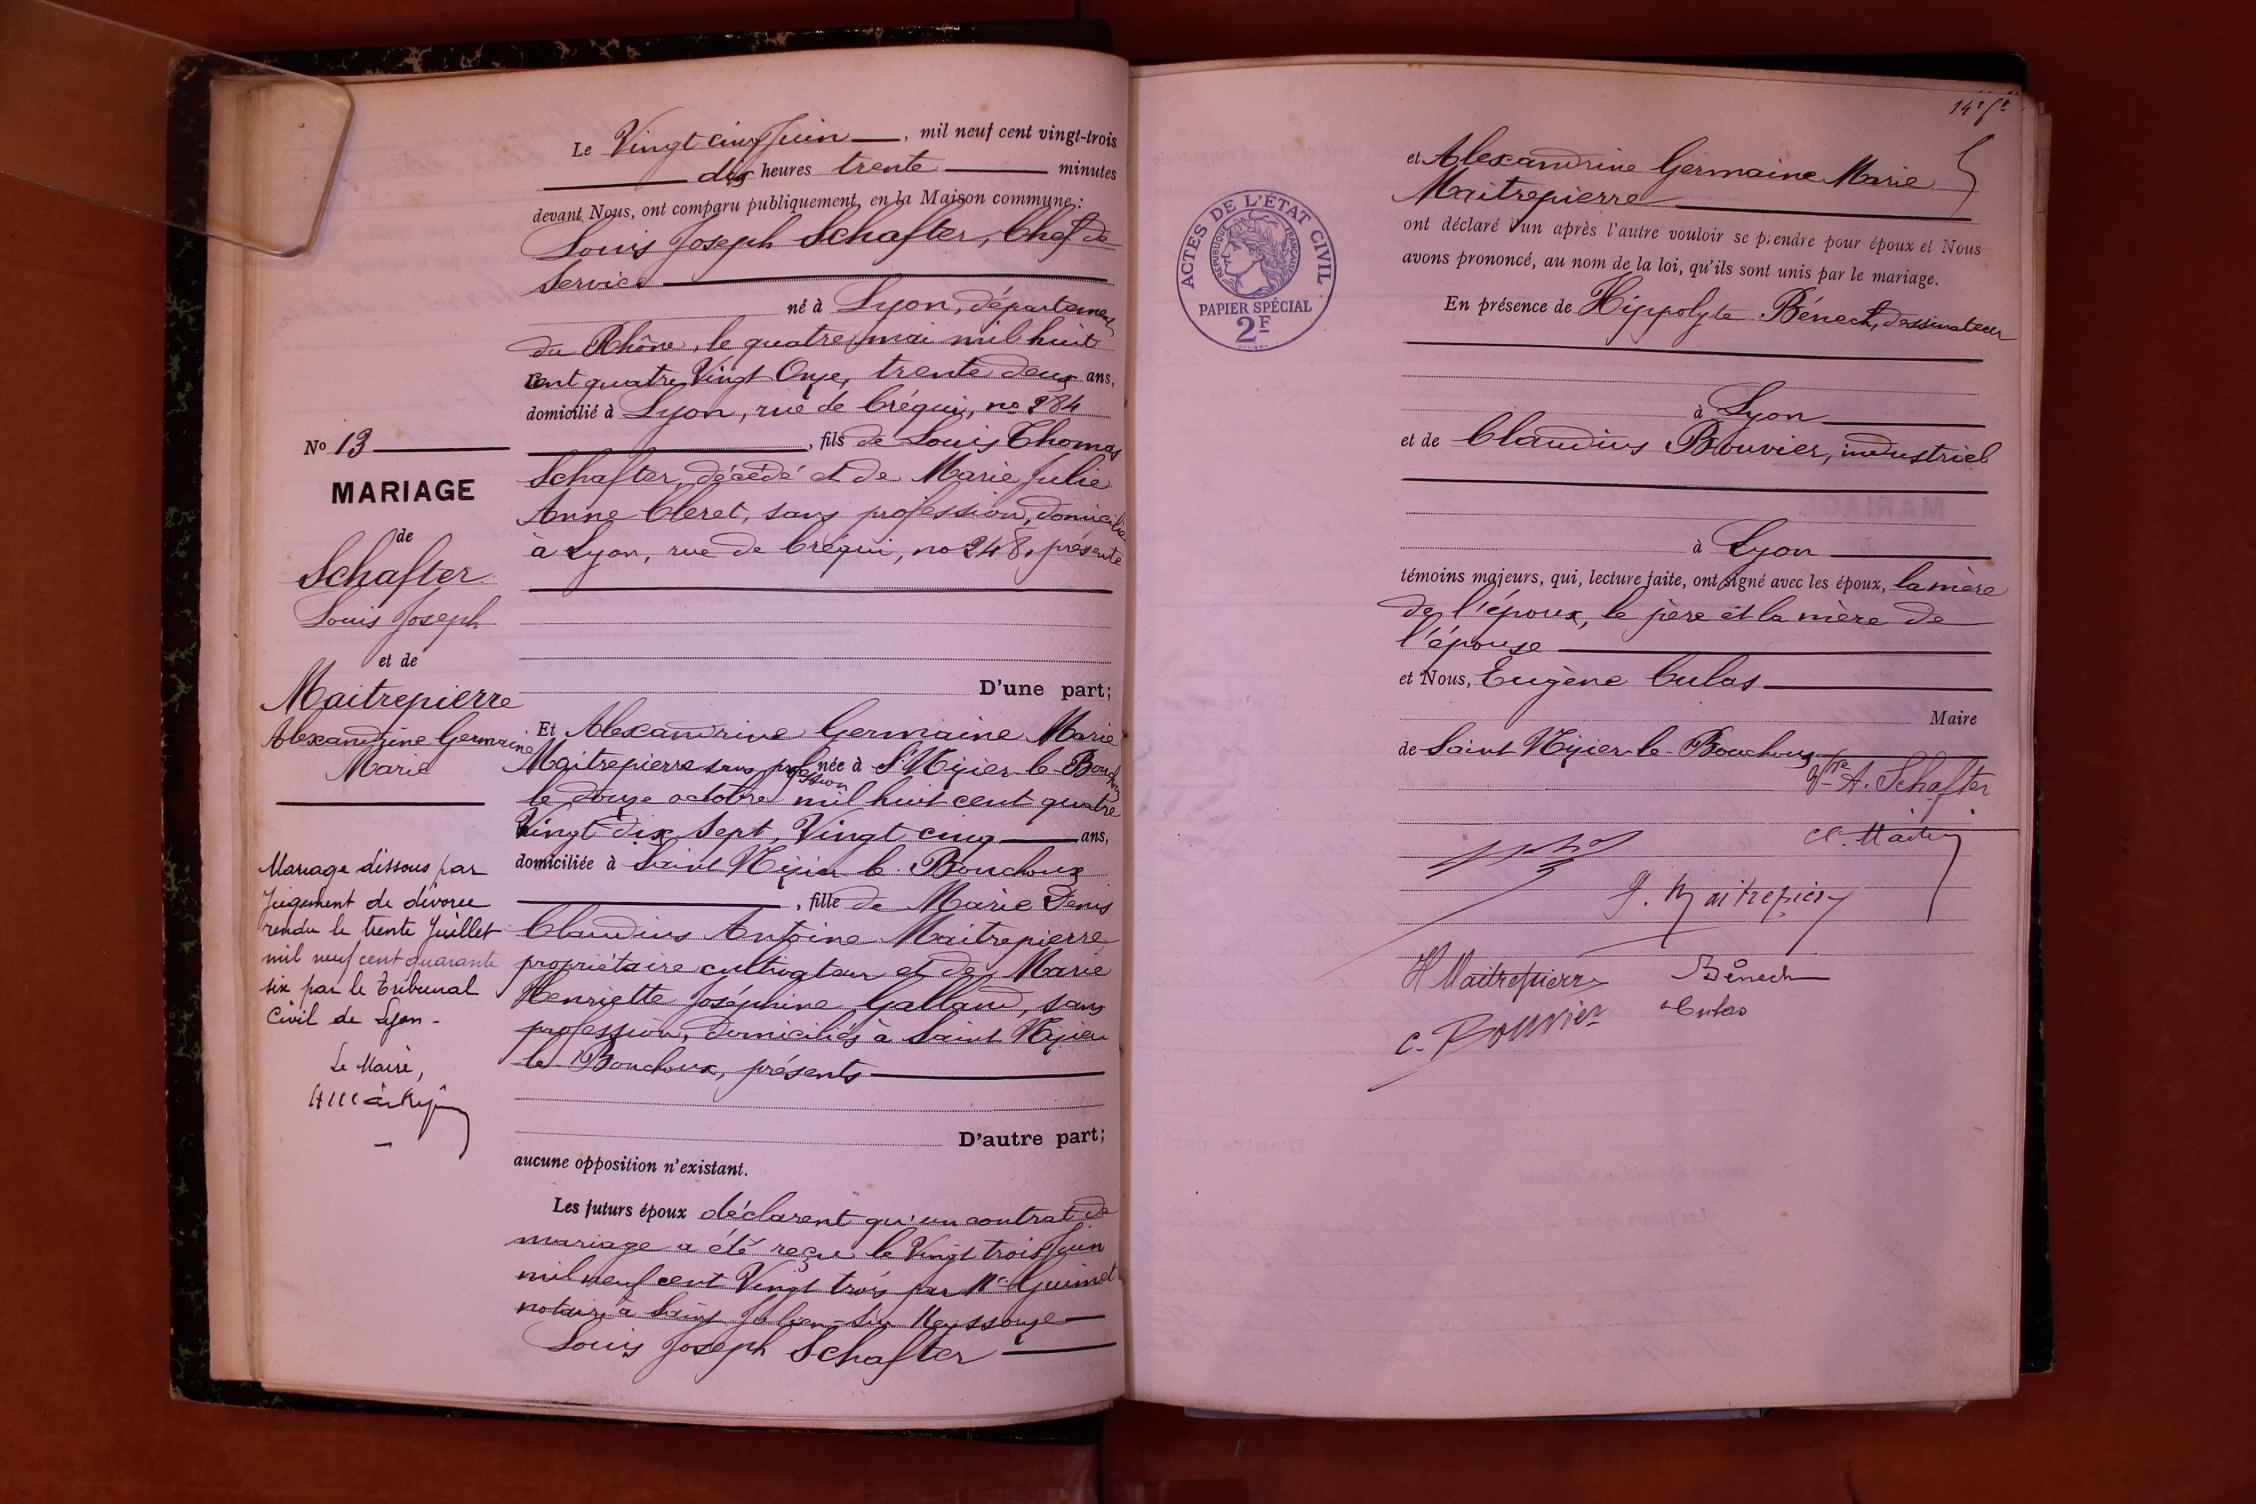 Le Vingt cinq Juin, mil neuf cent vingt-trois
dix heures trente minutes
devant Nous, ont comparu publiquement en la Maison commune:
Louis Joseph Schafter, Chef de
Service
né à Lyon, département
du Rhône, le quatre mai mil huit
cent quatre Vingt Onze, trente deux ans,
domicilié à Lyon, rue de Créqui, no 284
, fils de Louis Thomas
Schafter, décédé et de Marie Julie
Anne Cleret, sans profession, domiciliée
à Lyon, rue de Créqui, no 248, présente
D'une part;
Et Alexandrine Germaine Marie
Maitrepierre sans profession née à St Nizier le Bouchoux
le douze octobre mil huit cent quatre
Vingt dix Sept, Vingt cinq ans,
domiciliée à Saint Nizier le Bouchoux
, fille de Marie Denis
Claudius Antoine Maitrepierre,
propriétaire cultivateur et de Marie
Henriette Joséphine Galland, sans
profession, domiciliés à Saint Nizier
le Bouchoux, présents
D'autre part;
aucune opposition n'existant.
Les futurs époux déclarent qu'un contrat de
mariage a été reçu le Vingt trois Juin
mil neuf cent Vingt trois par Me Guimet
notaire à Saint Julien-sur Reyssouze
Louis Joseph Schafter
No 13
MARIAGE
de
Schafter
Louis Joseph
et de
Maitrepierre
Alexandrine Germaine
Marie
Mariage dissous par
Jugement de divorce
rendu le trente Juillet
mil neuf cent quarante
six par le Tribunal
Civil de Lyon-
Le Maire,
ACTES DE L'ÉTAT CIVIL
RÉPUBLIQUE FRANÇAISE
PAPIER SPÉCIAL
2F
et Alexandrine Germaine Marie
Maitrepierre
ont déclaré l'un après l'autre vouloir se prendre pour époux et Nous
avons prononcé, au nom de la loi, qu'ils sont unis par le mariage.
En présence de Hippolyte Bénech, dessinateur
à Lyon
et de Claudius Bouvier, industriel
à Lyon
témoins majeurs, qui, lecture faite, ont signé avec les époux, la mère
de l'époux, le père et la mère de
l'épouse
et Nous, Eugène Culas
Maire
de Saint Nizier-le-Bouchoux
Vve A. Schafter
G. Maitrepierre
H Maitrepierre Bénech
C. Bouvier Culas